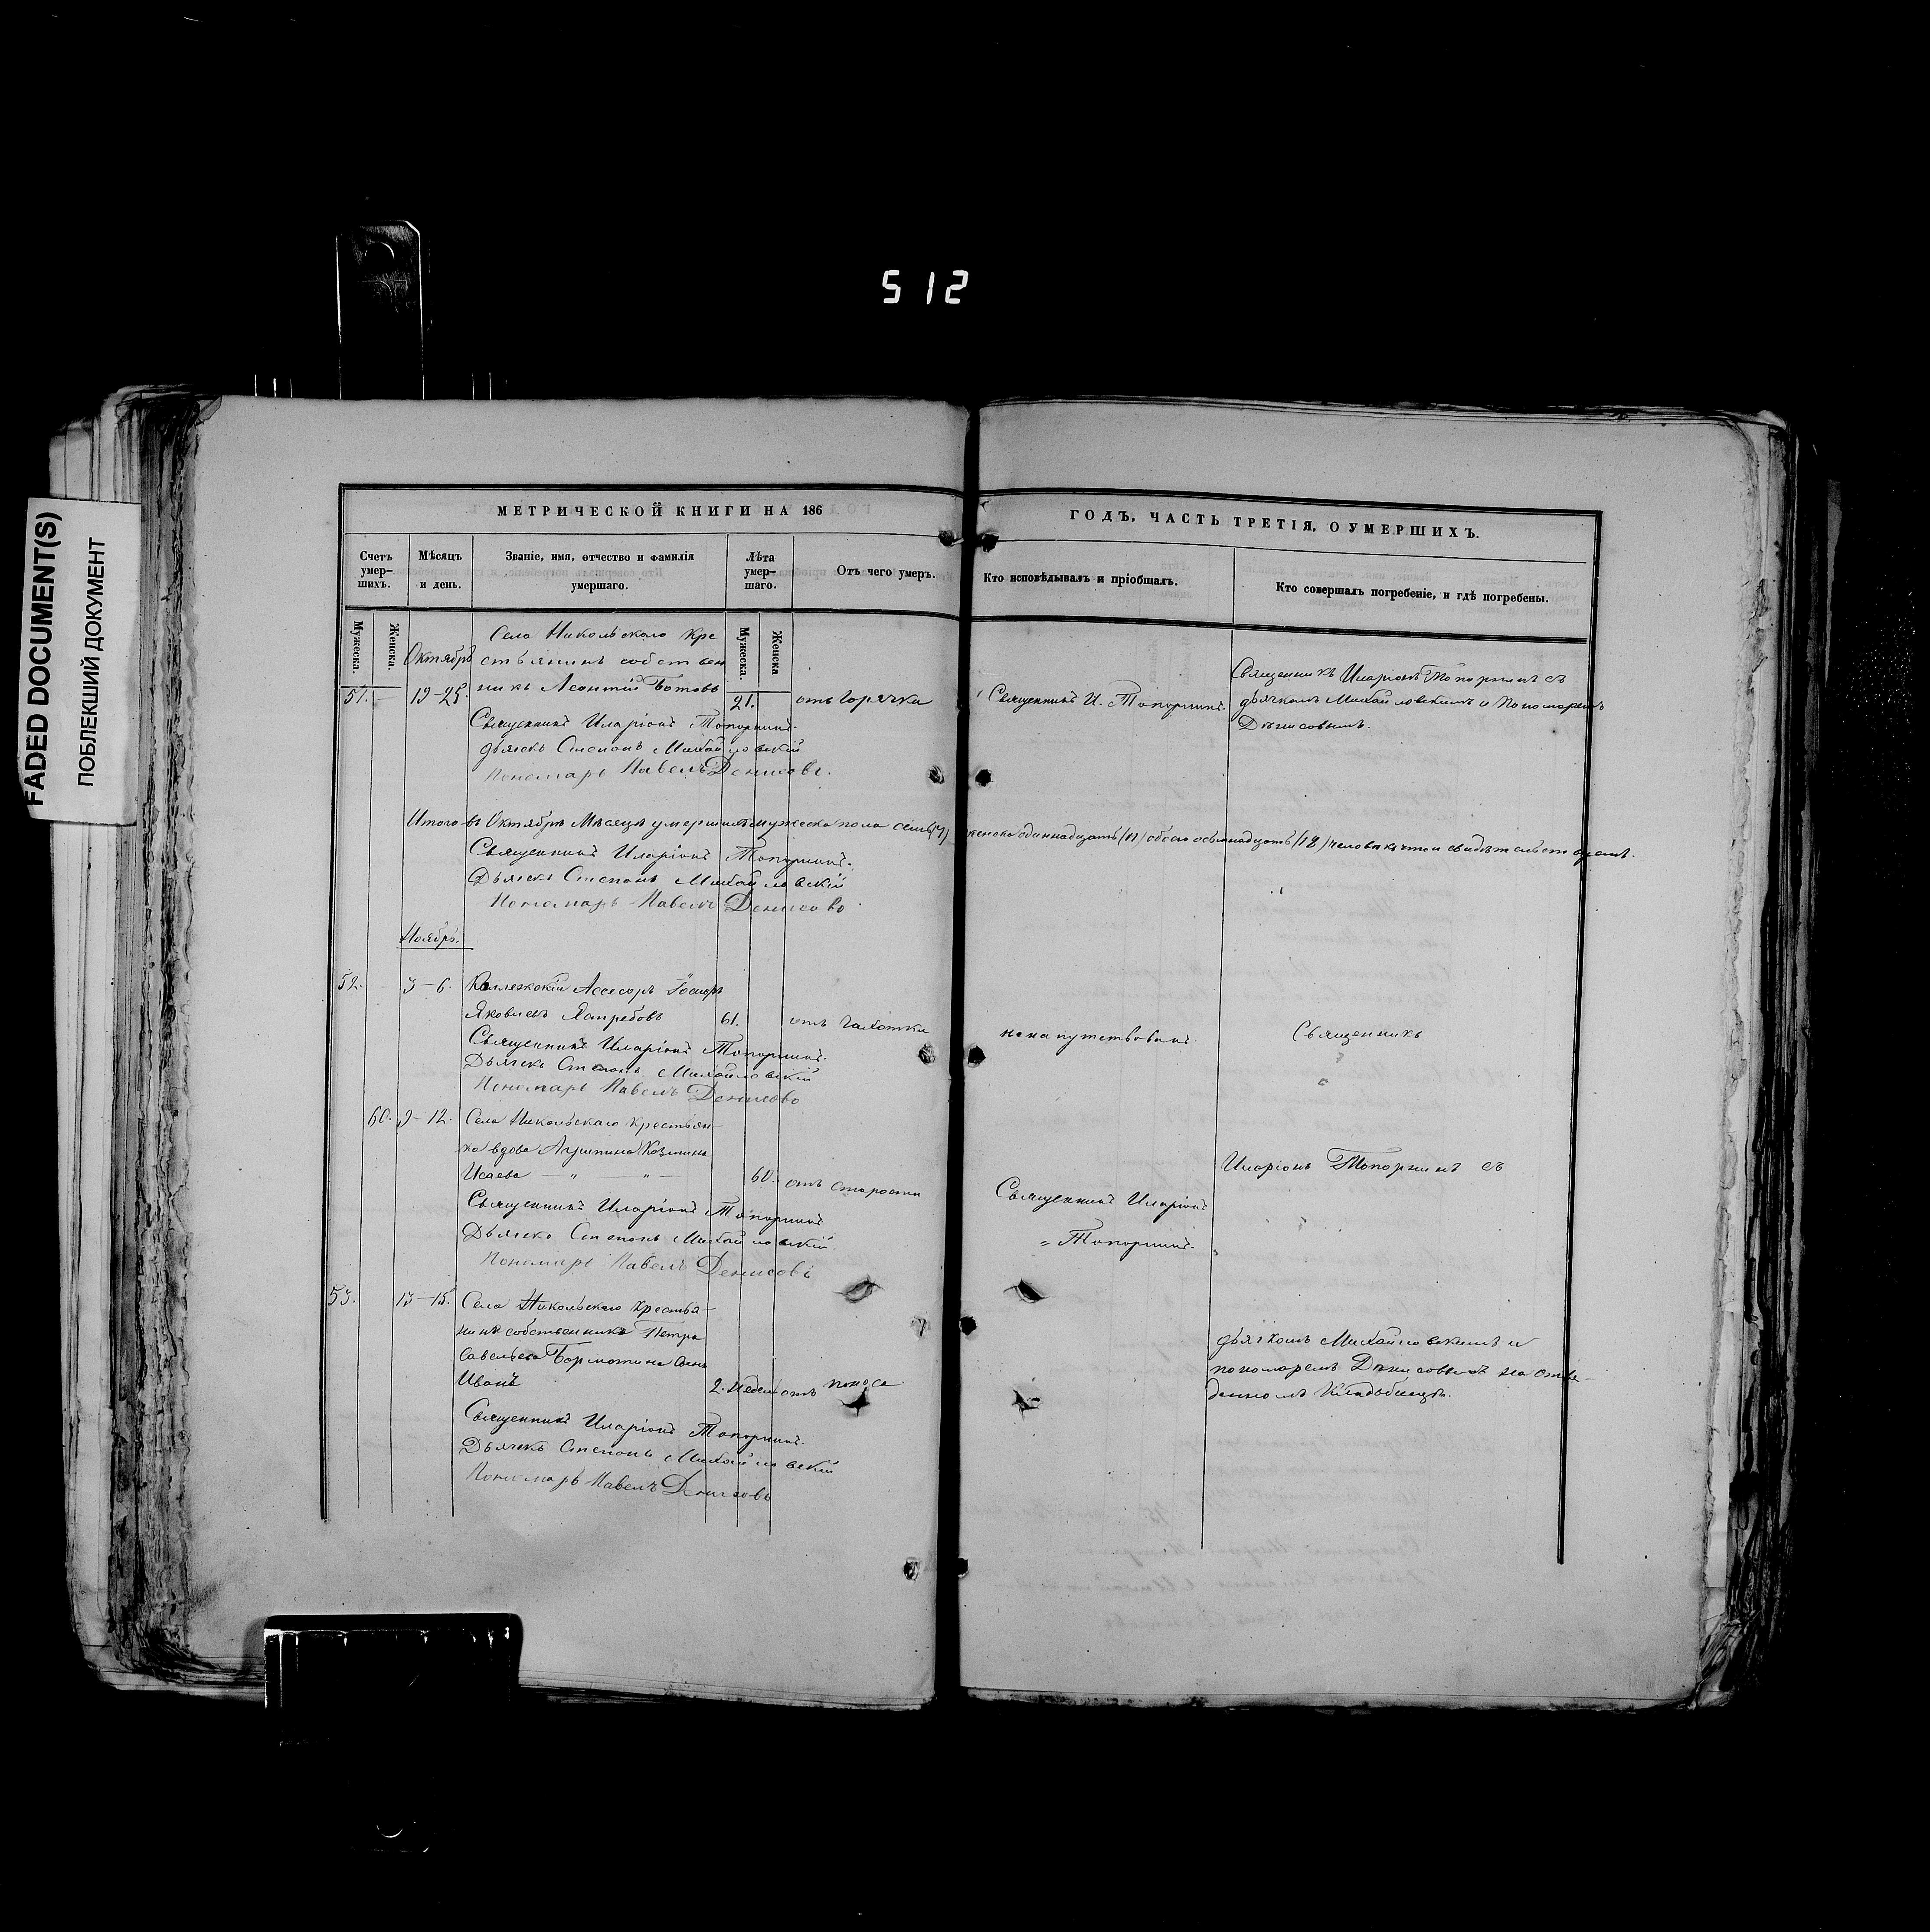 512
FADED DOCUMENT(S)
ПОБЛЕКШИЙ ДОКУМЕНТ
МЕТРИЧЕСКОЙ КНИГИ НА 186
Счетъ умер-ших. Мѣсяцъ и день. Званіе, имя, отчество и фамилія умершаго. Лѣта умер-шаго. Отъ чего умеръ.
Мужеска. Женска. Мужеска. Женска
Октябрь
Села Никольскаго кре
стьянинъ собствен
51. 19-25. никъ Леонтій Ботовъ 21. отъ горячки
Священникъ Иларіонъ Топорнинъ.
дьячекъ Степанъ Михайловскій
Пономарь Павелъ Денисовъ.
Итого въ Октябрѣ Мѣсяцѣ умершихъ мужеска пола семь (7)
Священникъ Иларіонъ Топорнинъ.
Дьячекъ Степанъ Михайловскій
Пономарь Павелъ Денисовъ
Ноябрь.
52. 3-6. Коллежскій Ассесоръ
Яковлевъ 61. отъ чахотки
Священникъ Иларіонъ Топорнинъ.
Дьячекъ Степанъ Михайловскій
Пономарь Павелъ Денисовъ
60. 9-12. Села Никольскаго крестьян-
ка вдова Агрипина Козмина
Исаева 60. отъ старости
Священникъ Иларіонъ Топорнинъ
Дьячекъ Степанъ Михайловскій
Пономарь Павелъ Денисовъ
53. 13-15. Села Никольскаго крестья-
нина собственника Петра
Савельева сынъ
Иванъ 2. недел отъ поноса
Священникъ Иларіонъ Топорнинъ.
Дьячекъ Степанъ Михайловскій
Пономарь Павелъ Денисовъ
ГОДЪ, ЧАСТЬ ТРЕТІЯ, О УМЕРШИХЪ.
Кто исповѣдывалъ и пріобщалъ. Кто совершалъ погребеніе, и гдѣ погребены.
Священникъ И. Топорнинъ.
Священникъ Иларіонъ Топорнинъ съ
дьячкомъ Михайловскимъ и Пономаремъ
Денисовымъ.
женска одиннадцать (11) обоего осьмнадцать (18) человѣкъ что и свидѣтельствуемъ.
не напутствованъ.
Священникъ
Иларіонъ Топорнинъ съ
Священникъ Иларіонъ
Топорнинъ.
дьячкомъ Михайловскимъ и
пономаремъ Денисовымъ на отве-
денномъ кладбищѣ.